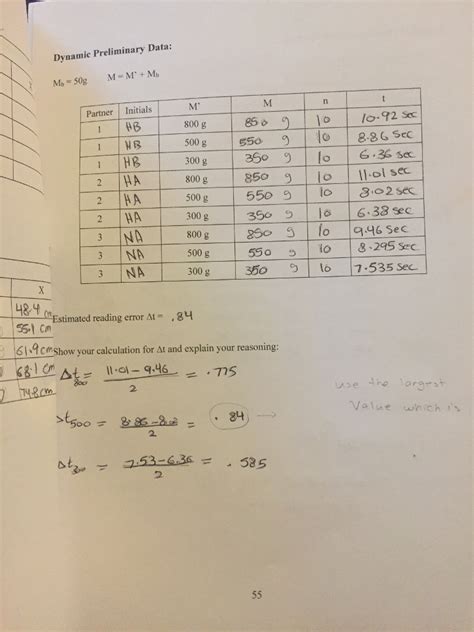 Dynamic Preliminary Data:
Mb = 50g M = M* + Mb
Partner Initials M* M n t
1 HB 800 g 850 g 10 10.92 sec
1 HB 500 g 550 g 10 8.86 sec
1 HB 300 g 350 g 10 6.36 sec
2 HA 800 g 850 g 10 11.01 sec
2 HA 500 g 550 g 10 8.02 sec
2 HA 300 g 350 g 10 6.38 sec
3 NA 800 g 850 g 10 9.46 sec
3 NA 500 g 550 g 10 8.295 sec
3 NA 300 g 350 g 10 7.535 sec
X
48.4 cm
55.1 cm
61.9 cm
68.1 cm
74.8 cm
Estimated reading error Δt = .84
Show your calculation for Δt and explain your reasoning:
Δt800 = 11.01-9.46 / 2 = .775
use the largest
Value which is
Δt500 = 8.86-8.02 / 2 = .84 →
Δt300 = 7.53-6.36 / 2 = .585
55